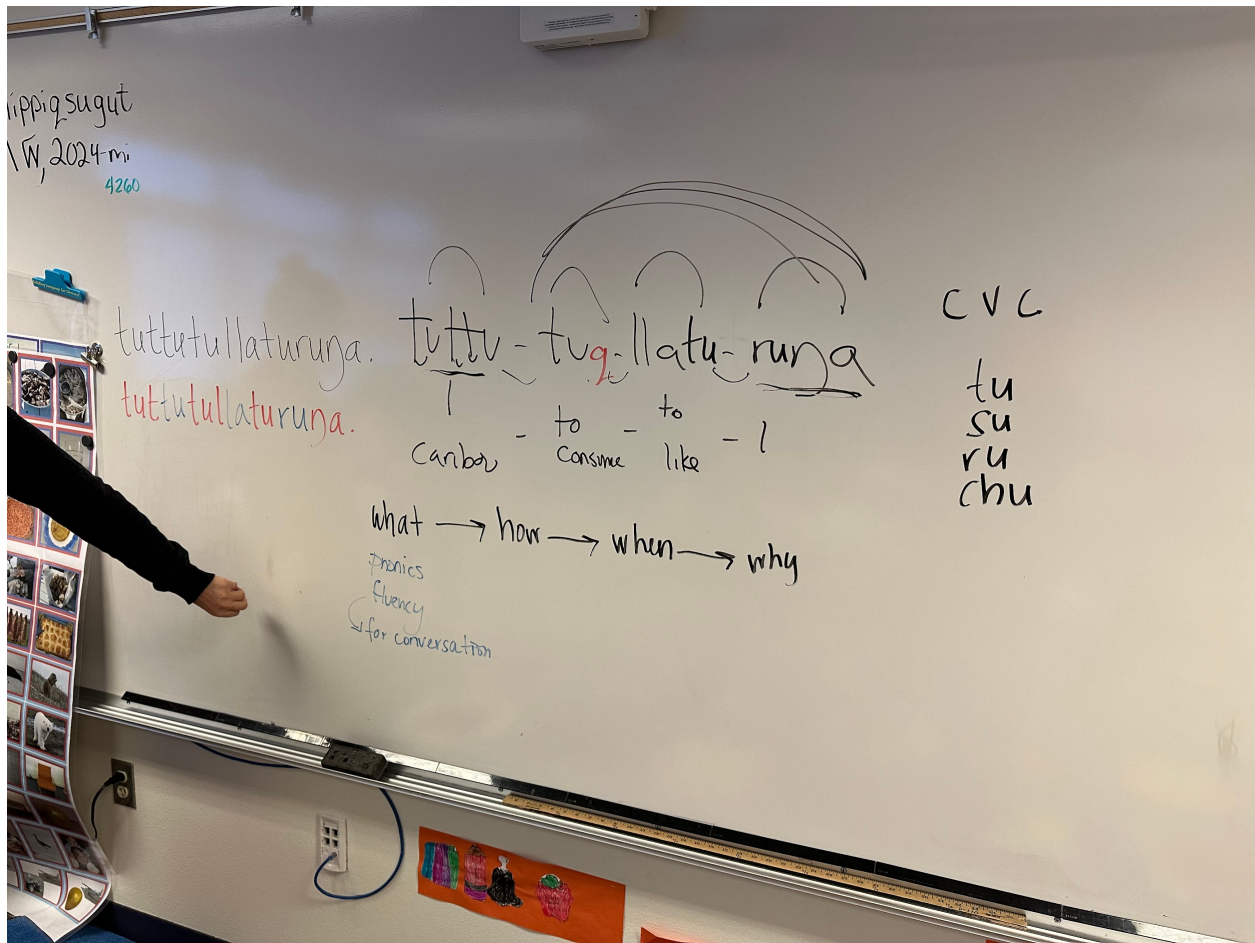 ippiqsugut
2024-mi
4260
tuttutullaturuŋa.
tuttutullaturuŋa.
tuttu - tuq - llatu - ruŋa
caribou - to consume - to like - I
what → how → when → why
phonics
fluency
→ for conversation
C V C
tu
su
ru
chu